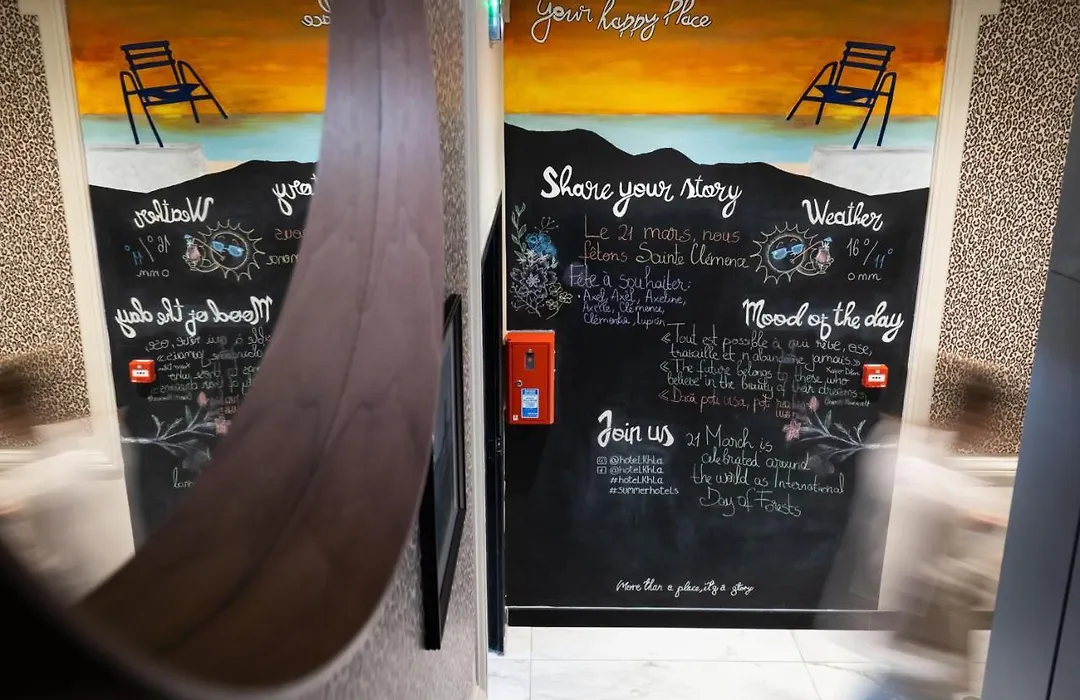 Your happy Place
Share your story
Le 21 mars, nous
fêtons Sainte Clémence
Fête à souhaiter:
• Axel, Axèl, Axeline,
Axelle, Clémence,
Clémentia, Lupicin
Weather
16°/11°
0 mm
Mood of the day
« Tout est possible à qui rêve, ose,
travaille et n'abandonne jamais. »
« The future belongs to those who
believe in the beauty of their dreams
« Dacă poți visa, poți
Join us
@hotel.Khla
@hotel.Khla
#hotel.Khla
#summerhotels
21 March is
celebrated around
the world as International
Day of Forests
More than a place, it's a story